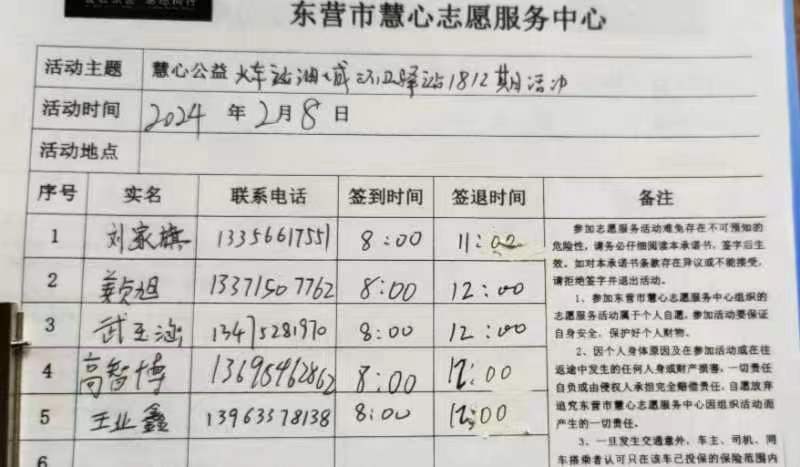 东营市慧心志愿服务中心
活动主题 慧心公益 火车站油城环卫驿站1812期活动
活动时间 2024 年 2 月 8 日
活动地点
序号 实名 联系电话 签到时间 签退时间 备注
1 刘家旗 13356617551 8:00 11:02
2 姜旭 13371507762 8:00 12:00
3 武玉涵 13475281970 8:00 12:00
4 高智博 13695462862 8:00 12:00
5 王业鑫 13963378138 8:00 12:00
6
参加志愿服务活动难免存在不可预知的
危险性,请务必仔细阅读本承诺书,签字后生
效。如对本承诺书条款存在异议或不能接受,
请拒绝签字并退出活动。
1、参加东营市慧心志愿服务中心组织的
志愿服务活动属于个人自愿。参加活动要保证
自身安全、保护好个人财物。
2、因个人身体原因及在参加活动或在往
返途中发生的任何人身或财产损害,一切责任
自负或由侵权人承担完全赔偿责任。自愿放弃
追究东营市慧心志愿服务中心因组织活动而
产生的一切责任。
3、一旦发生交通意外、车主、司机、同
车搭乘者认可只在该车已投保的保险范围内